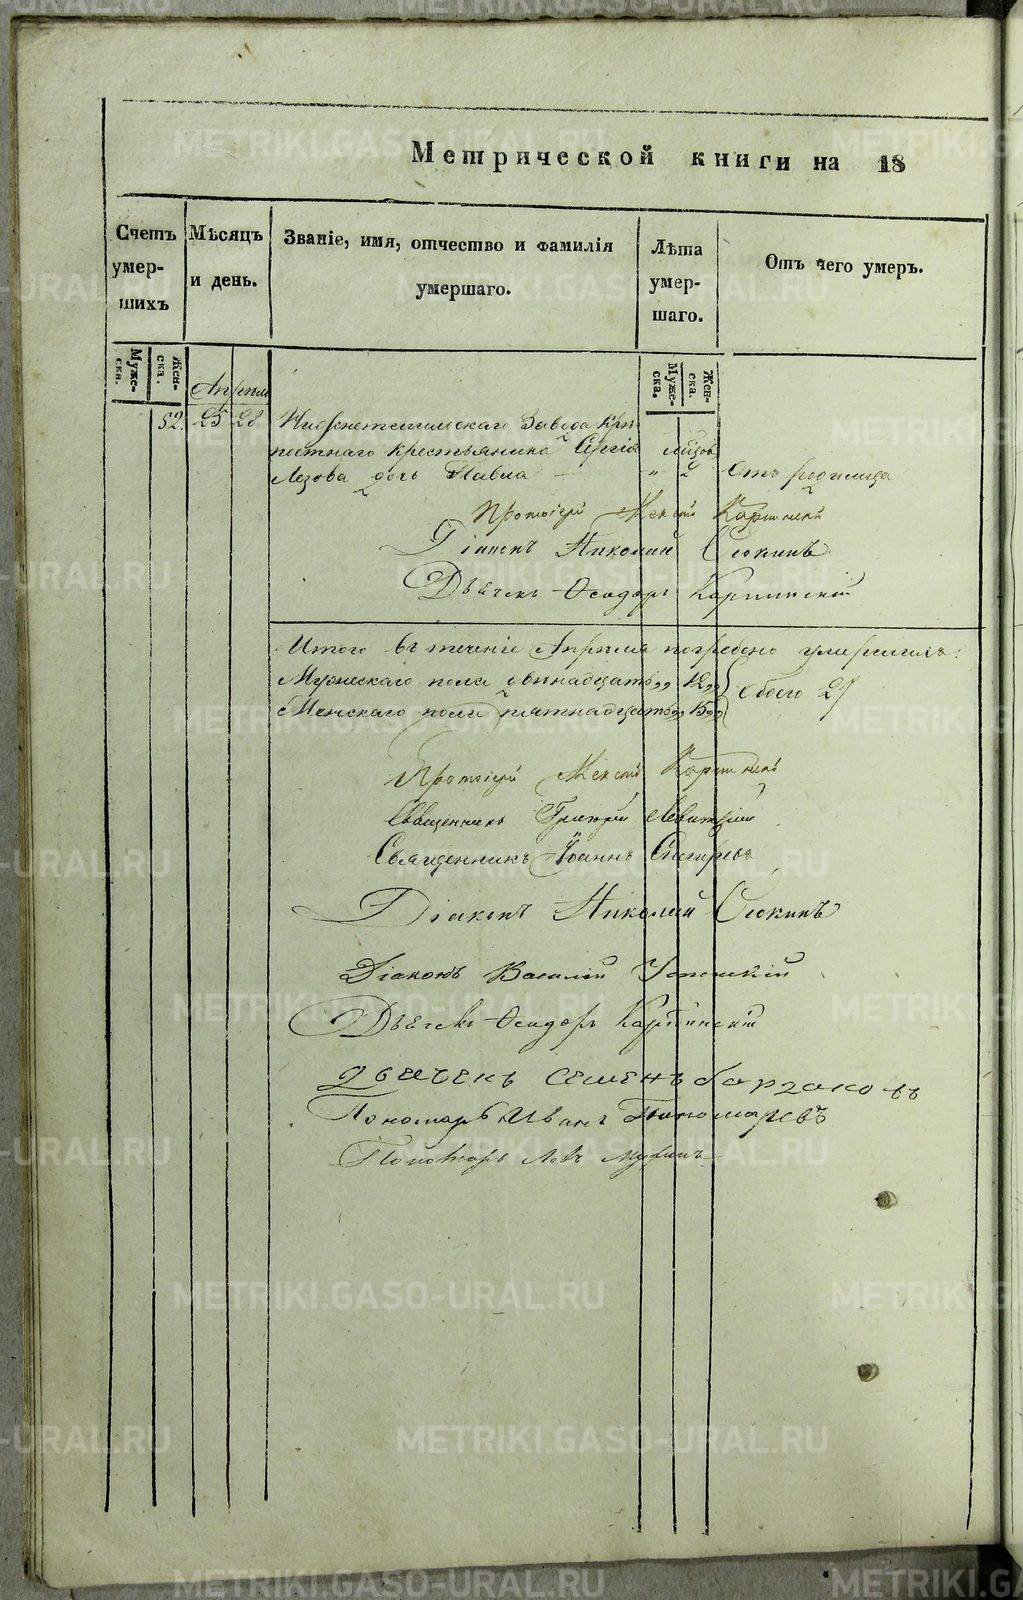 Метрической книги на 18
Счетъ умершихъ
Мѣсяцъ и день.
Званіе, имя, отчество и фамилія умершаго.
Лѣта умершаго.
Отъ чего умеръ.
Мужеска.
Женска.
Апрѣля
Мужеска.
Женска.
52 25 28 Нижнетагильскаго Завода крѣ
постнаго крестьянина Сергія
Лезова дочь Павла " 2 Отъ родимца
Протоіерей Карпинскій
Діаконъ Николай Слокинъ
Дьячекъ Ѳеодоръ Карпинскій
Итого въ теченіе Апрѣля погребено умершихъ:
Мужескаго пола двѣнадцать „ 12 „
Женскаго пола пятнадцать „ 15 „
обоего 27
Протоіерей
Священникъ Григорій Левитскій
Священникъ Іоаннъ
Діаконъ Николай Слокинъ
Діаконъ Василій Успенскій
Дьячекъ Ѳеодоръ Карпинскій
Дьячекъ Семенъ
Пономарь Иванъ Пономаревъ
Пономарь Левъ
METRIKI.GASO-URAL.RU